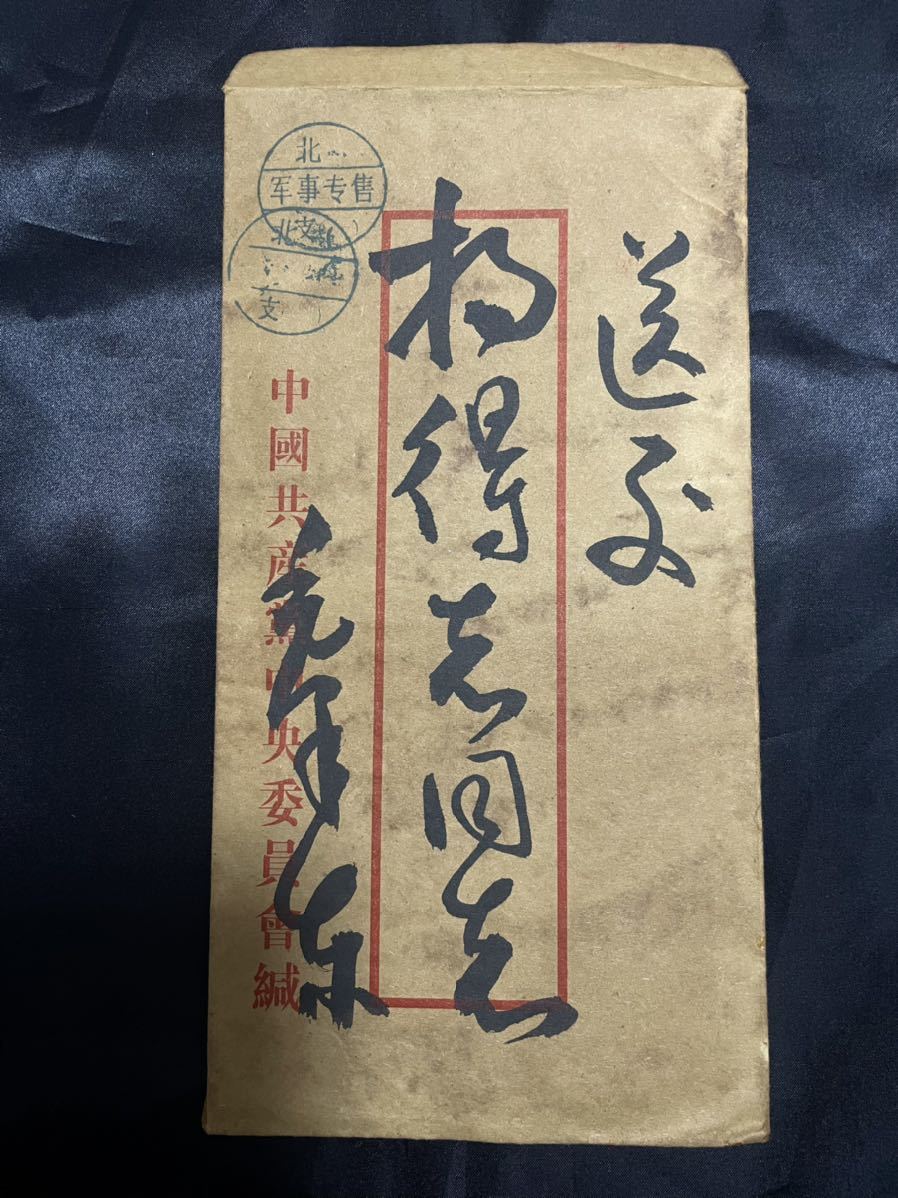 送交
杨得志同志
毛泽东
中國共産黨中央委員會緘
北
军事专售
支
北
支